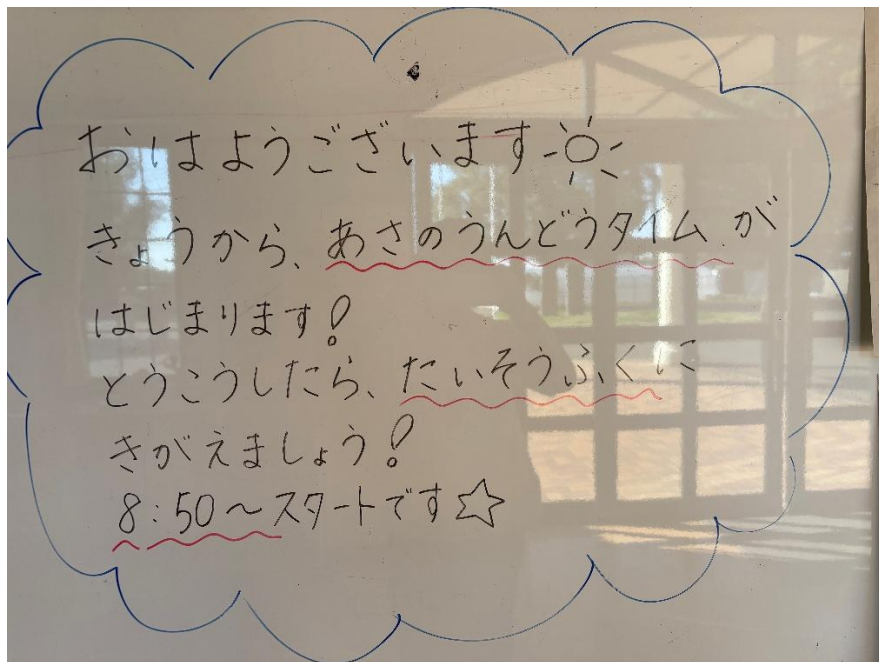 おはようございます
きょうから、あさのうんどうタイムが
はじまります!
とうこうしたら、たいそうふくに
きがえましょう!
8:50〜スタートです☆